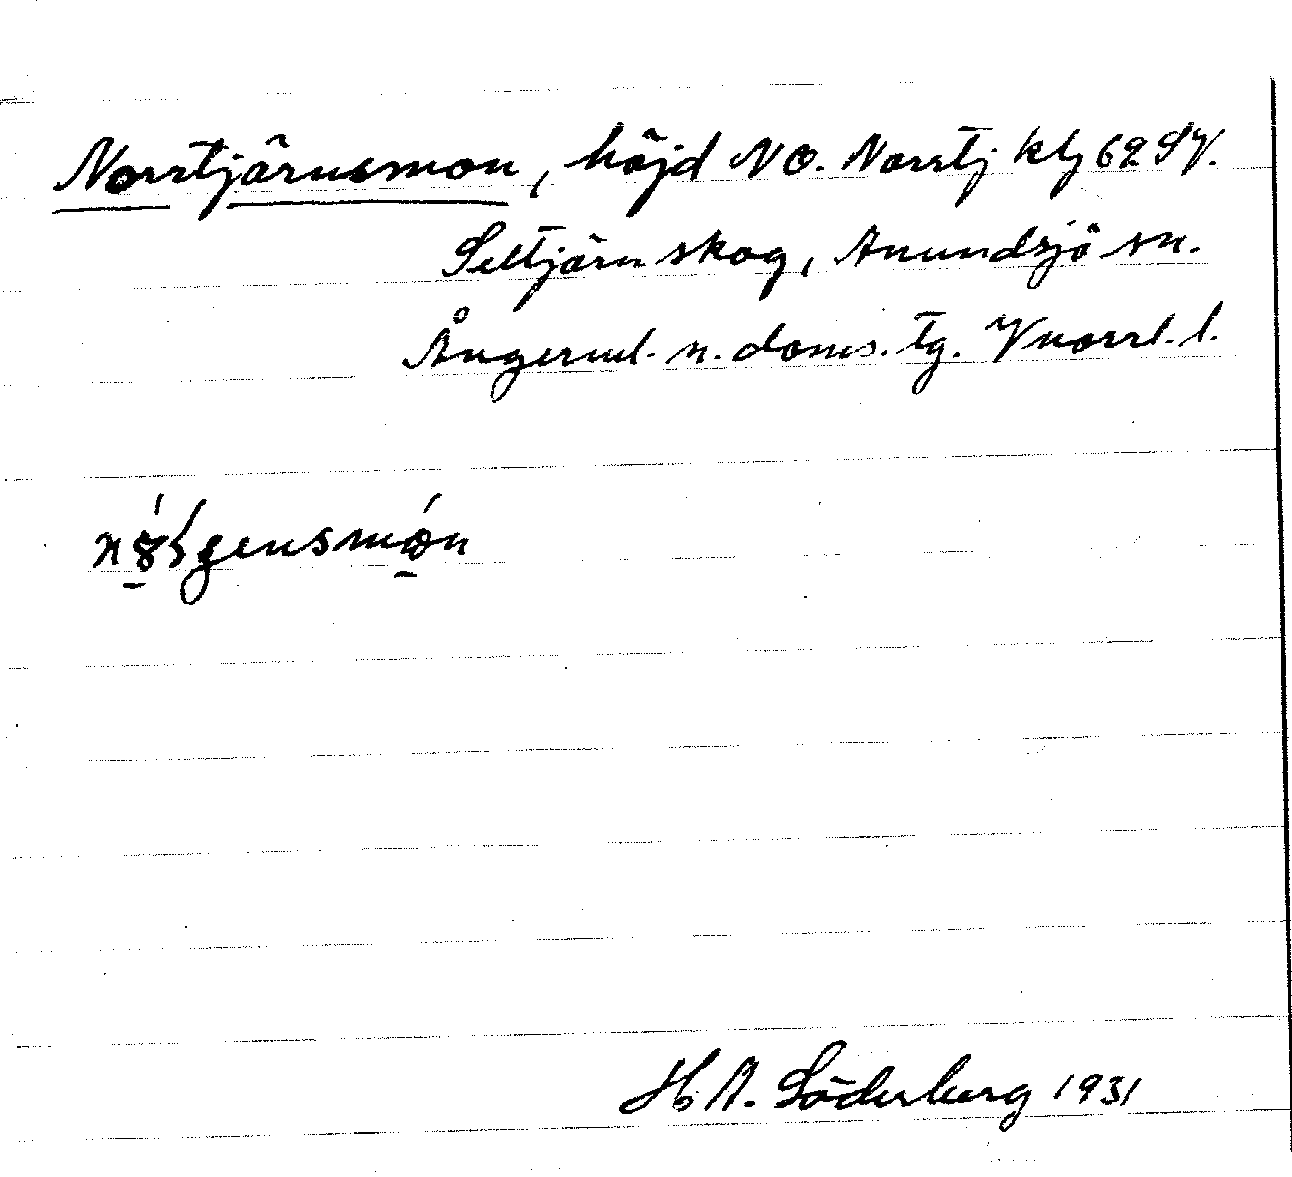 Norrtjärnsmon, höjd NO. Norrtj klj 62 SV.
Seltjärn skog, Anundsjö sn.
Ångerml. n. doms. tg. Vnorrl. l.
H. A. Söderberg 1931